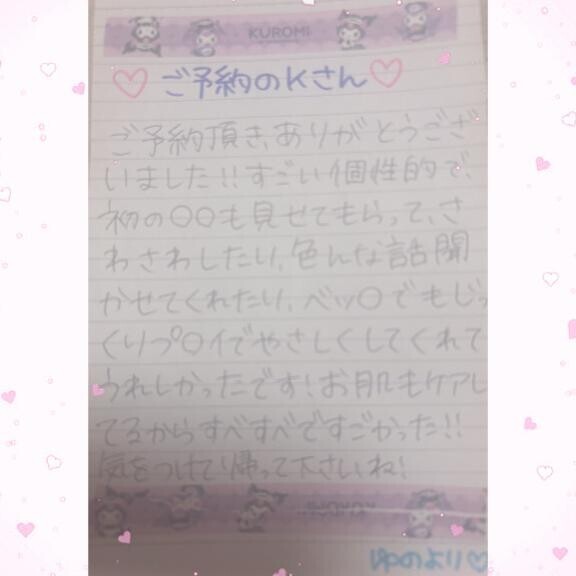 KUROMI
ご予約のKさん
ご予約頂き、ありがとうござ
いました!!すごい個性的で、
初の〇〇も見せてもらって、さ
わさわしたり、色んな話聞
かせてくれたり、ベッ〇でもじっ
くりプ〇イでやさしくしてくれて
うれしかったです!お肌もケアし
てるからすべすべですごかった!!
気をつけて帰って下さいね!
KUROMI
ゆのより